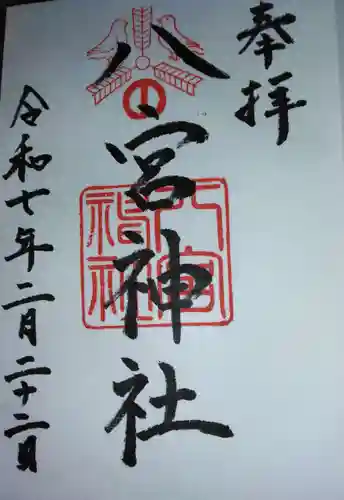 奉拝
八宮神社
八宮神社
令和七年二月二十二日